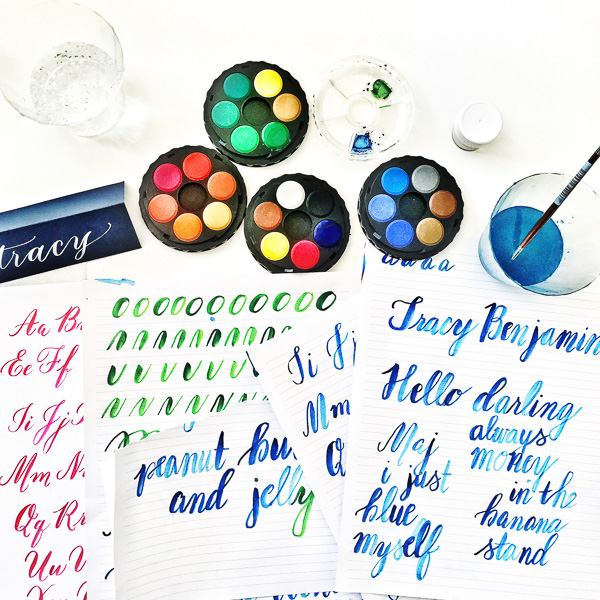 tracy
Aa B
Ee Ff
Ii Jj
Mm N
Qq Rr
Uu V
OOOOOOOOOO
Ii Jj
Mm
Q
peanut bu
and jelly
Tracy Benjamin
Hello darling
Maj
i just
blue
myself
always
money
in the
banana
stand